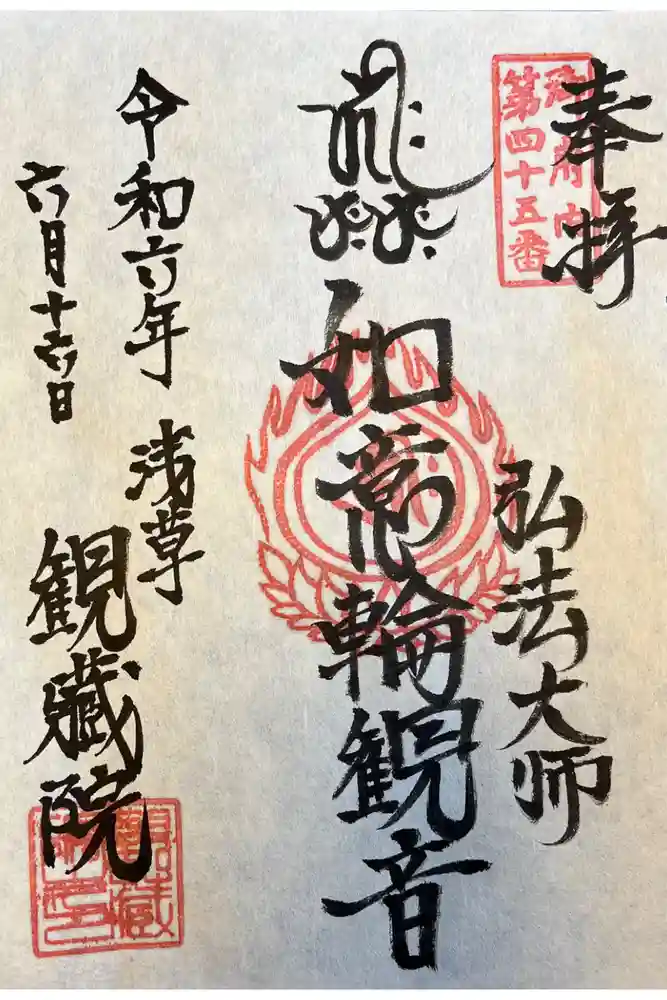 奉拝
御府内
第四十五番
弘法大师
如意輪観音
令和六年
六月十六日
浅草
観蔵院